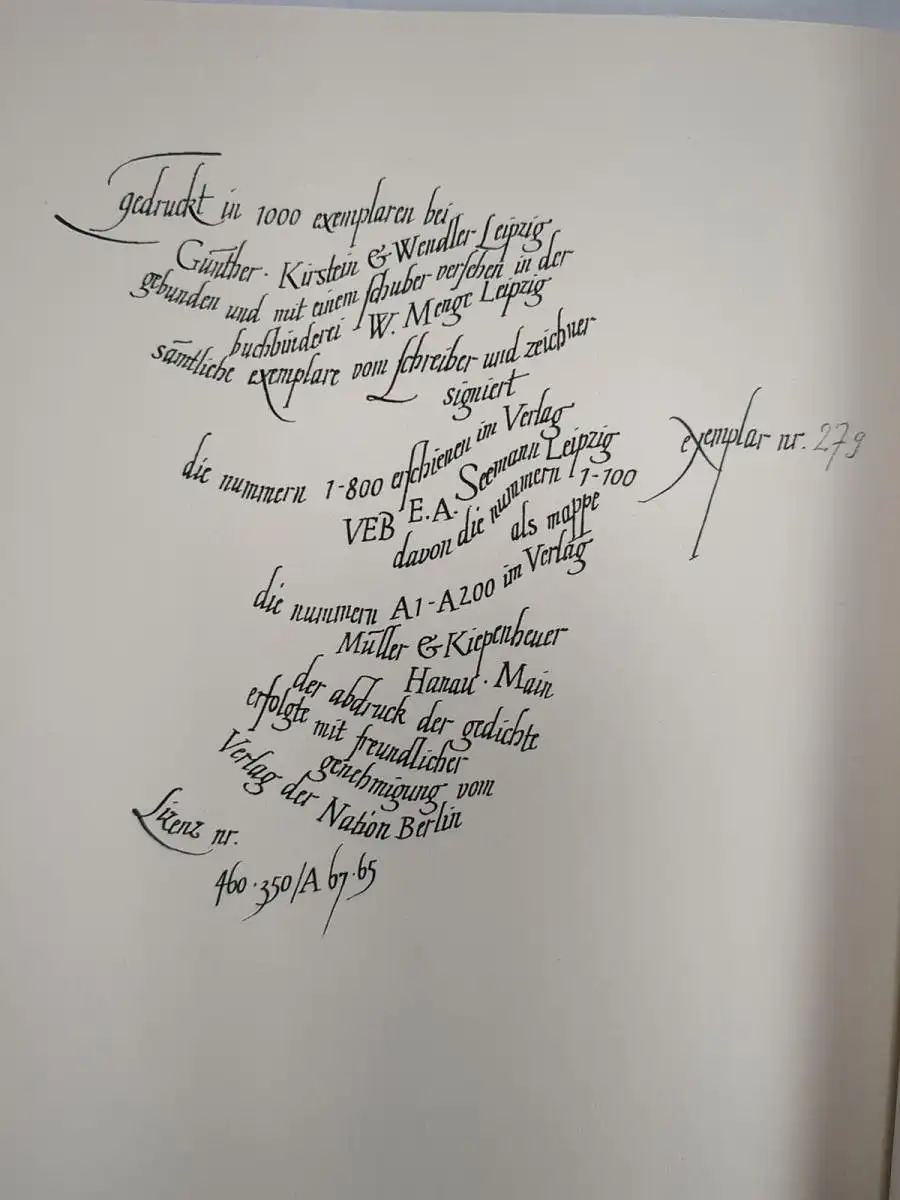 gedruckt in 1000 exemplaren bei
Günther · Kirstein & Wendler · Leipzig
gebunden und mit einem schuber versehen in der
buchbinderei W. Menge Leipzig
sämtliche exemplare vom schreiber und zeichner
signiert
die nummern 1-800 erschienen im Verlag
VEB E.A. Seemann Leipzig
davon die nummern 1-100
als mappe
exemplar nr. 279
die nummern A1-A200 im Verlag
Müller & Kiepenheuer
Hanau · Main
der abdruck der gedichte
erfolgte mit freundlicher
genehmigung vom
Verlag der Nation Berlin
Lizenz nr.
460·350/A 67·65